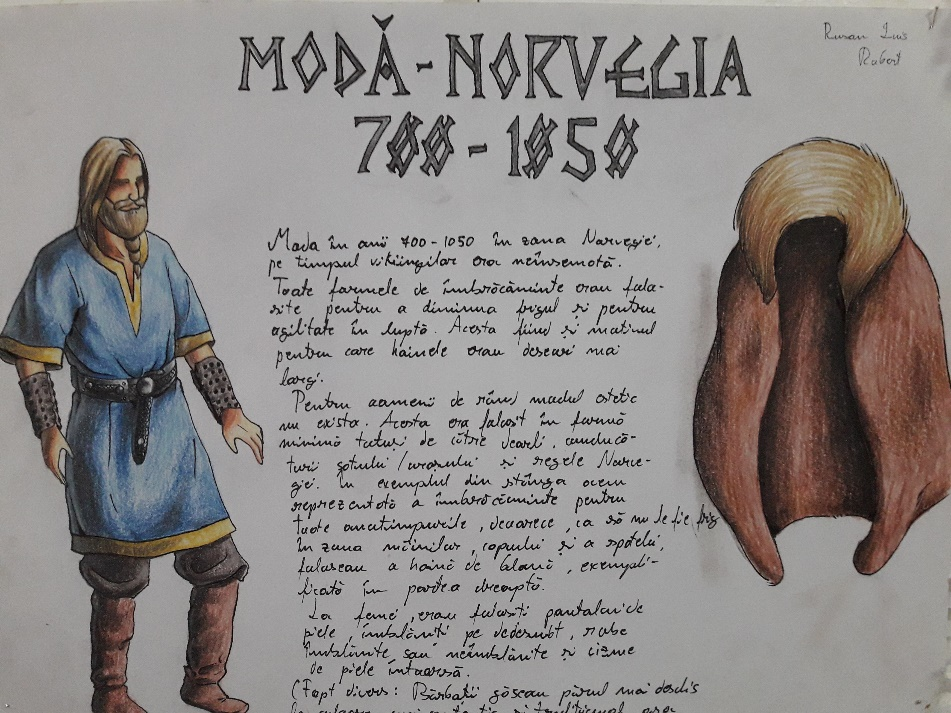 MODĂ-NORVEGIA
700-1050
Rusan Luis
Robert
Moda în anii 700-1050 în zona Norvegiei,
pe timpul vikiingilor era neînsemată.
Toate formele de îmbrăcăminte erau folo-
site pentru a diminua frigul si pentru
agilitate în luptă. Acesta fiind și motivul
pentru care hainele erau deseori mai
largi.
Pentru oamenii de rând modul estetic
nu exista. Acesta era folosit în formă
minimă totuși de către Jearli, conducă-
turii șatului/orașului și regele Norve-
giei. În exemplul din stânga avem
reprezentată o îmbrăcăminte pentru
toate anotimpurile, deoarece, ca să nu le fie frig
în zona mâinilor, capului și a spatelui,
foloseau o haină de blană, exempli-
ficată în partea dreaptă.
La femei, erau folosiți pantaloni de
piele, îmblăniți pe dedesubt, robe
îmblănite sau neîmblănite și cizme
de piele întoarsă.
(Fapt divers: Bărbații găseau părul mai deschis